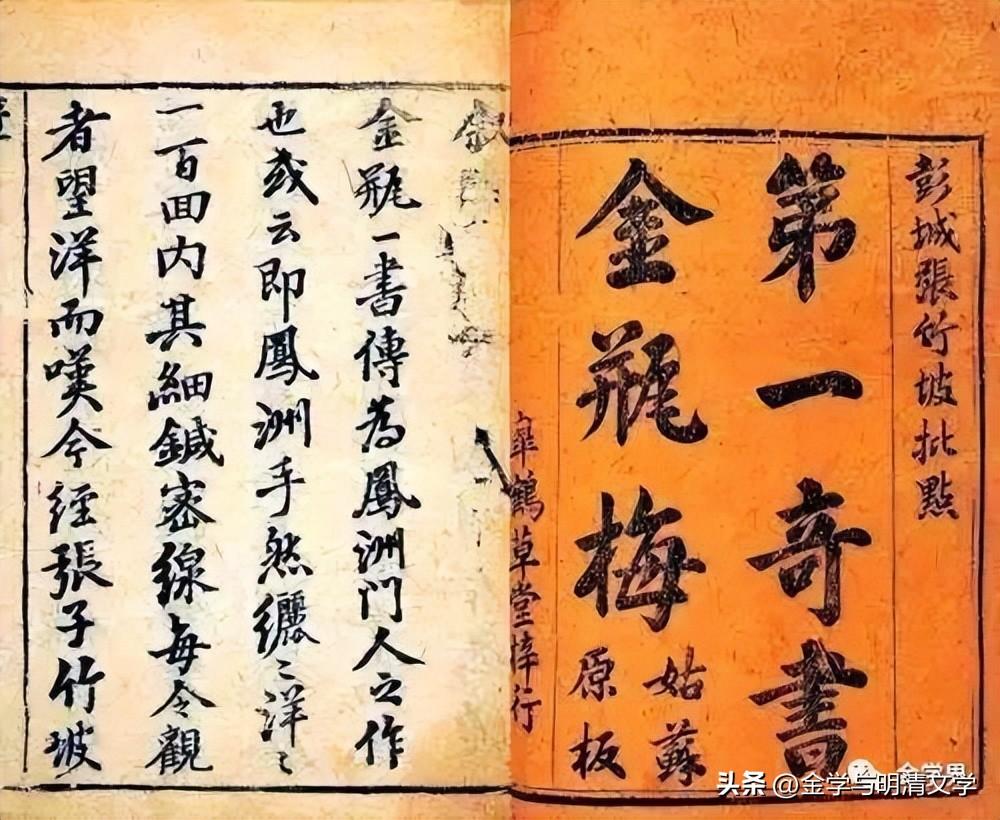 彭城張竹坡批點
第一奇書
金瓶梅
姑蘇
原板
皋鶴草堂梓行
金瓶一書傳為鳳洲門人之作
也或云即鳳洲手然纚〻洋〻
一百回內其細鍼密線每令觀
者望洋而嘆今經張子竹坡
金学界
头条 @金学与明清文学